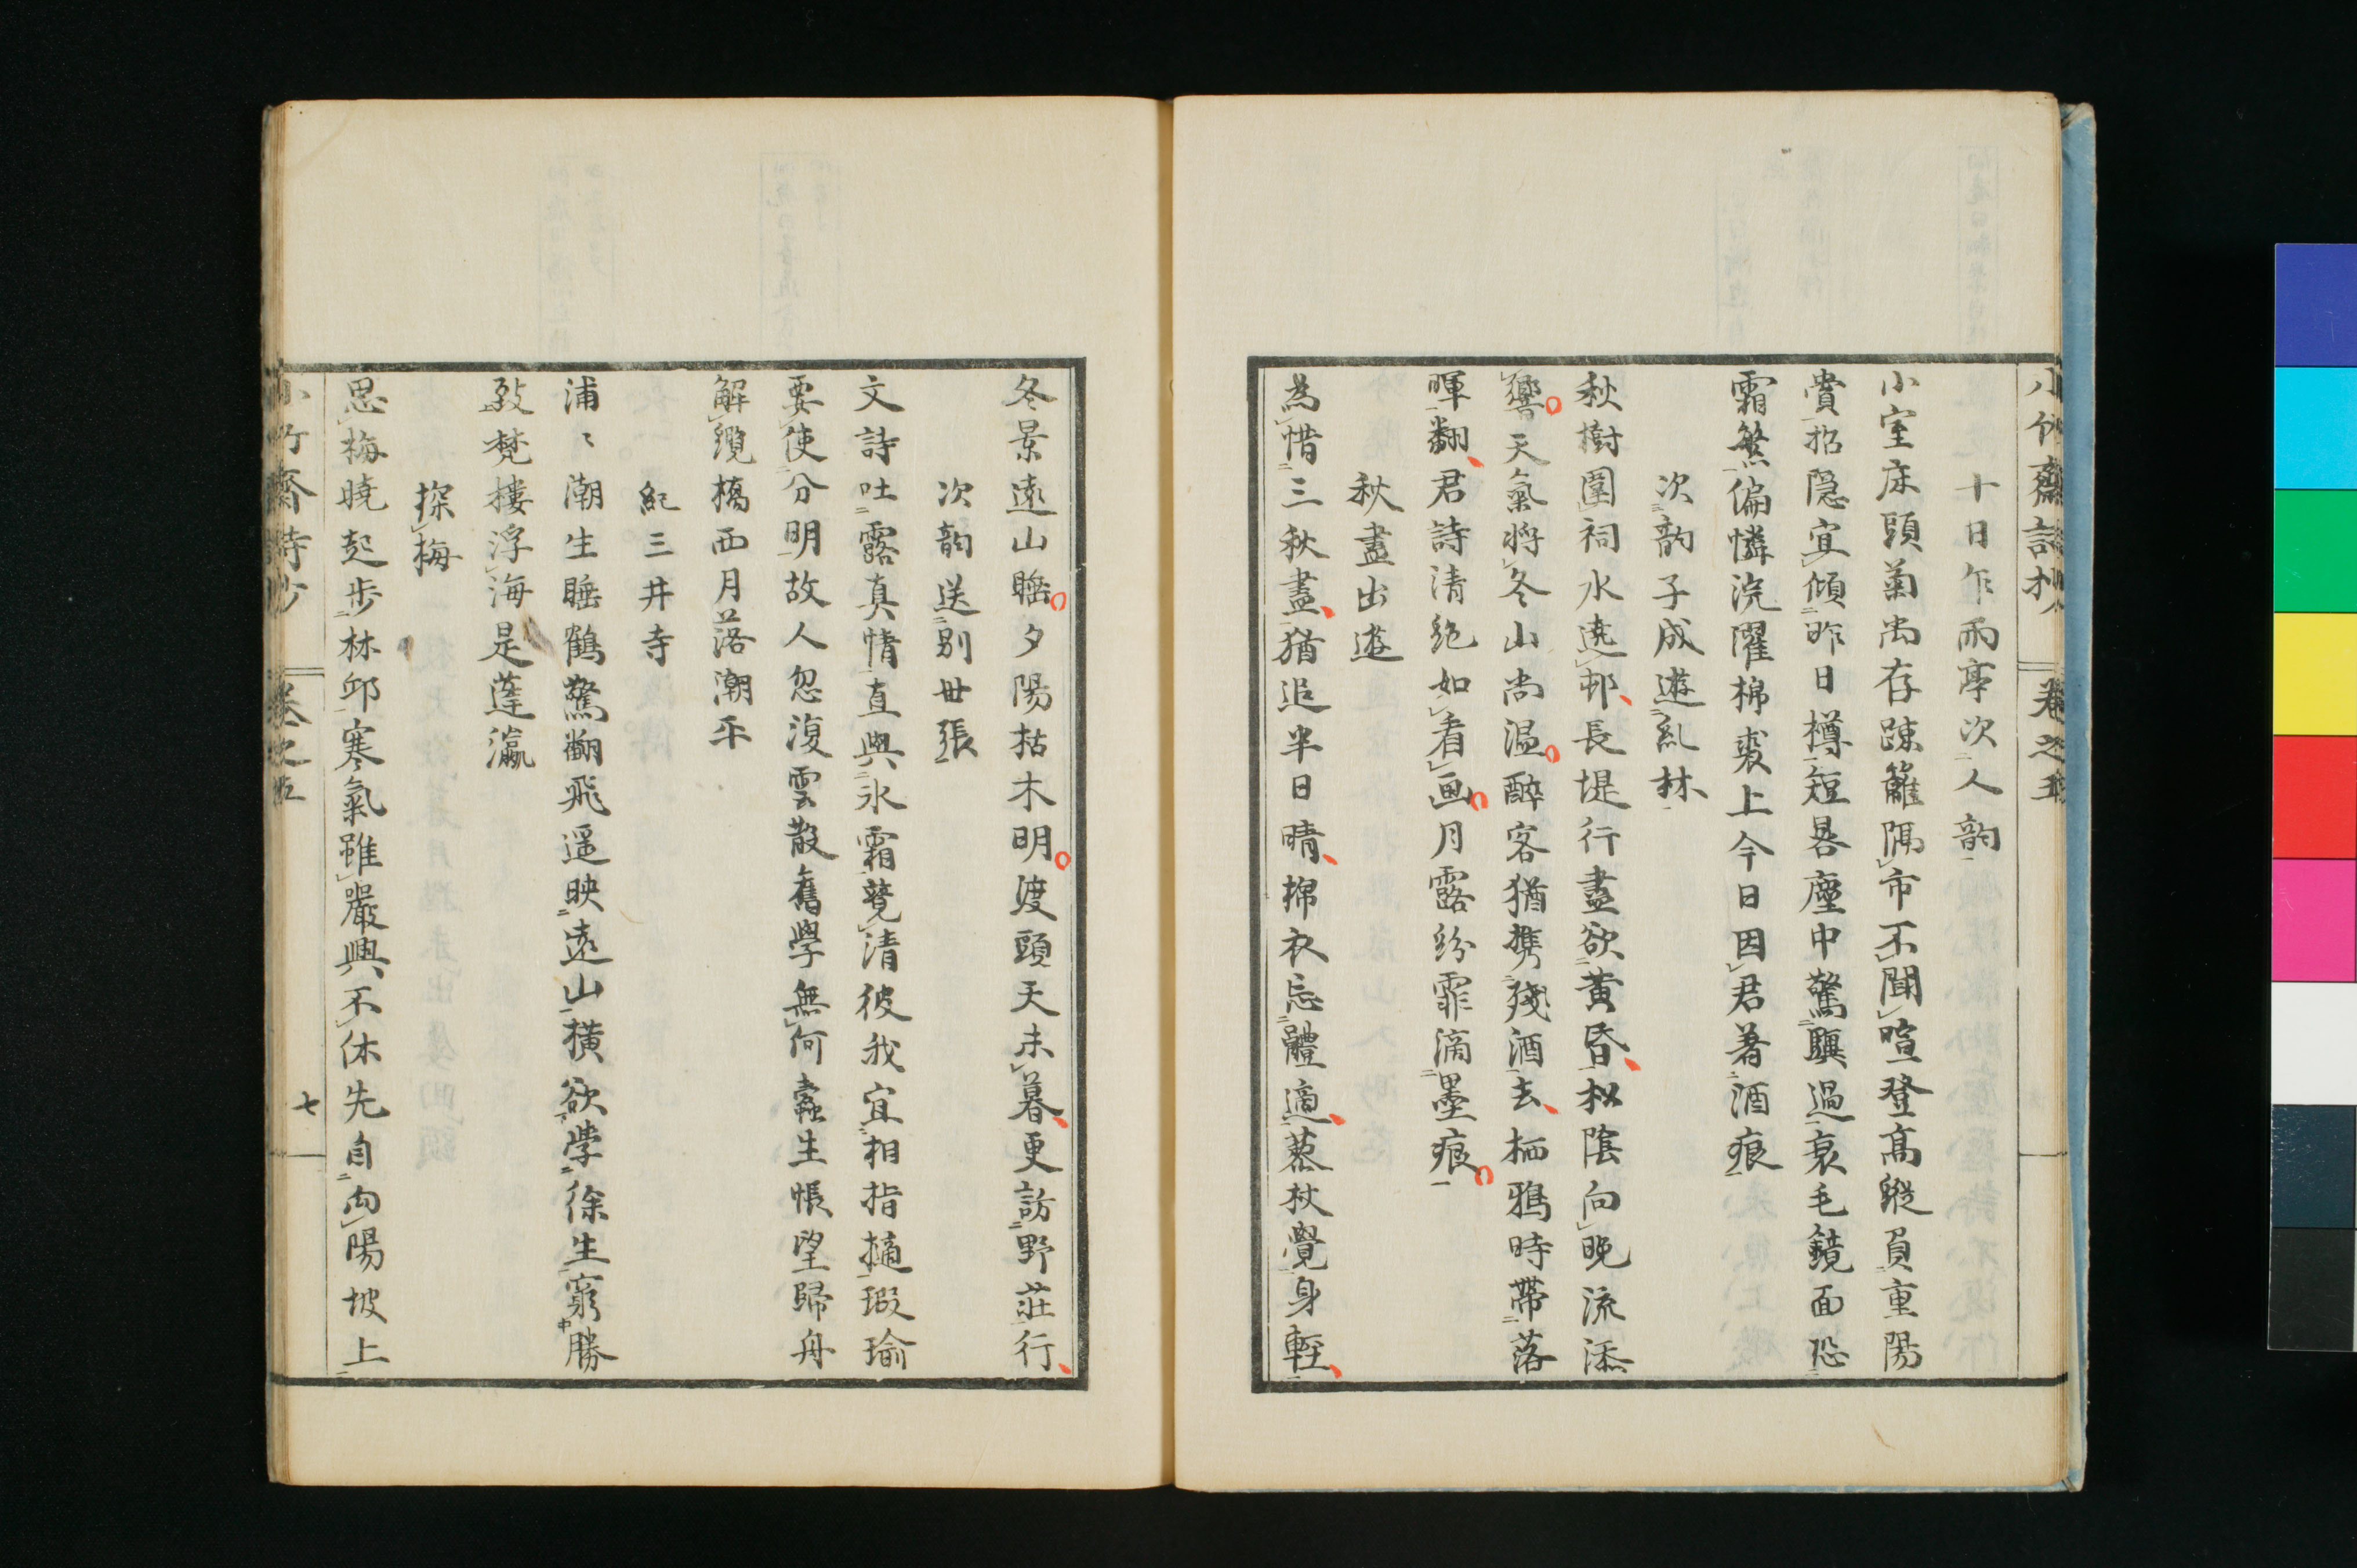 小竹齋詩抄 卷之五
十日乍雨亭次人韵
小室床頭菊尚存踈籬隔市不聞喧登高縱負重陽
賞招隱宜傾昨日樽短晷塵中驚驥過衰毛鏡面恐
霜繁偏憐浣濯棉裘上今日因君著酒痕
次韵子成遊糺林
秋樹圍祠水遶邨長堤行盡欲黃昏松陰向晚流添
響天氣將冬山尚溫醉客猶携殘酒去栖鴉時帶落
暉翻君詩清絶如看画月露紛霏滴墨痕
秋盡出遊
為惜三秋盡猶追半日晴棉衣忘體適藜杖覺身輕
冬景遠山睡夕陽枯木明渡頭天未暮更訪野莊行
次韵送別世張
文詩吐露真情直與氷霜競清彼我宜相指擿瑕瑜
要使分明故人忽復雲散舊學無何蠧生悵望歸舟
解纜橋西月落潮平
紀三井寺
浦〻潮生睡鶴驚翻飛遥映遠山橫欲学徐生窮勝
致梵樓浮海是蓬瀛
探梅
思梅曉起步林邱寒氣雖嚴興不休先自向陽坡上
小竹齋詩抄 卷之五 七